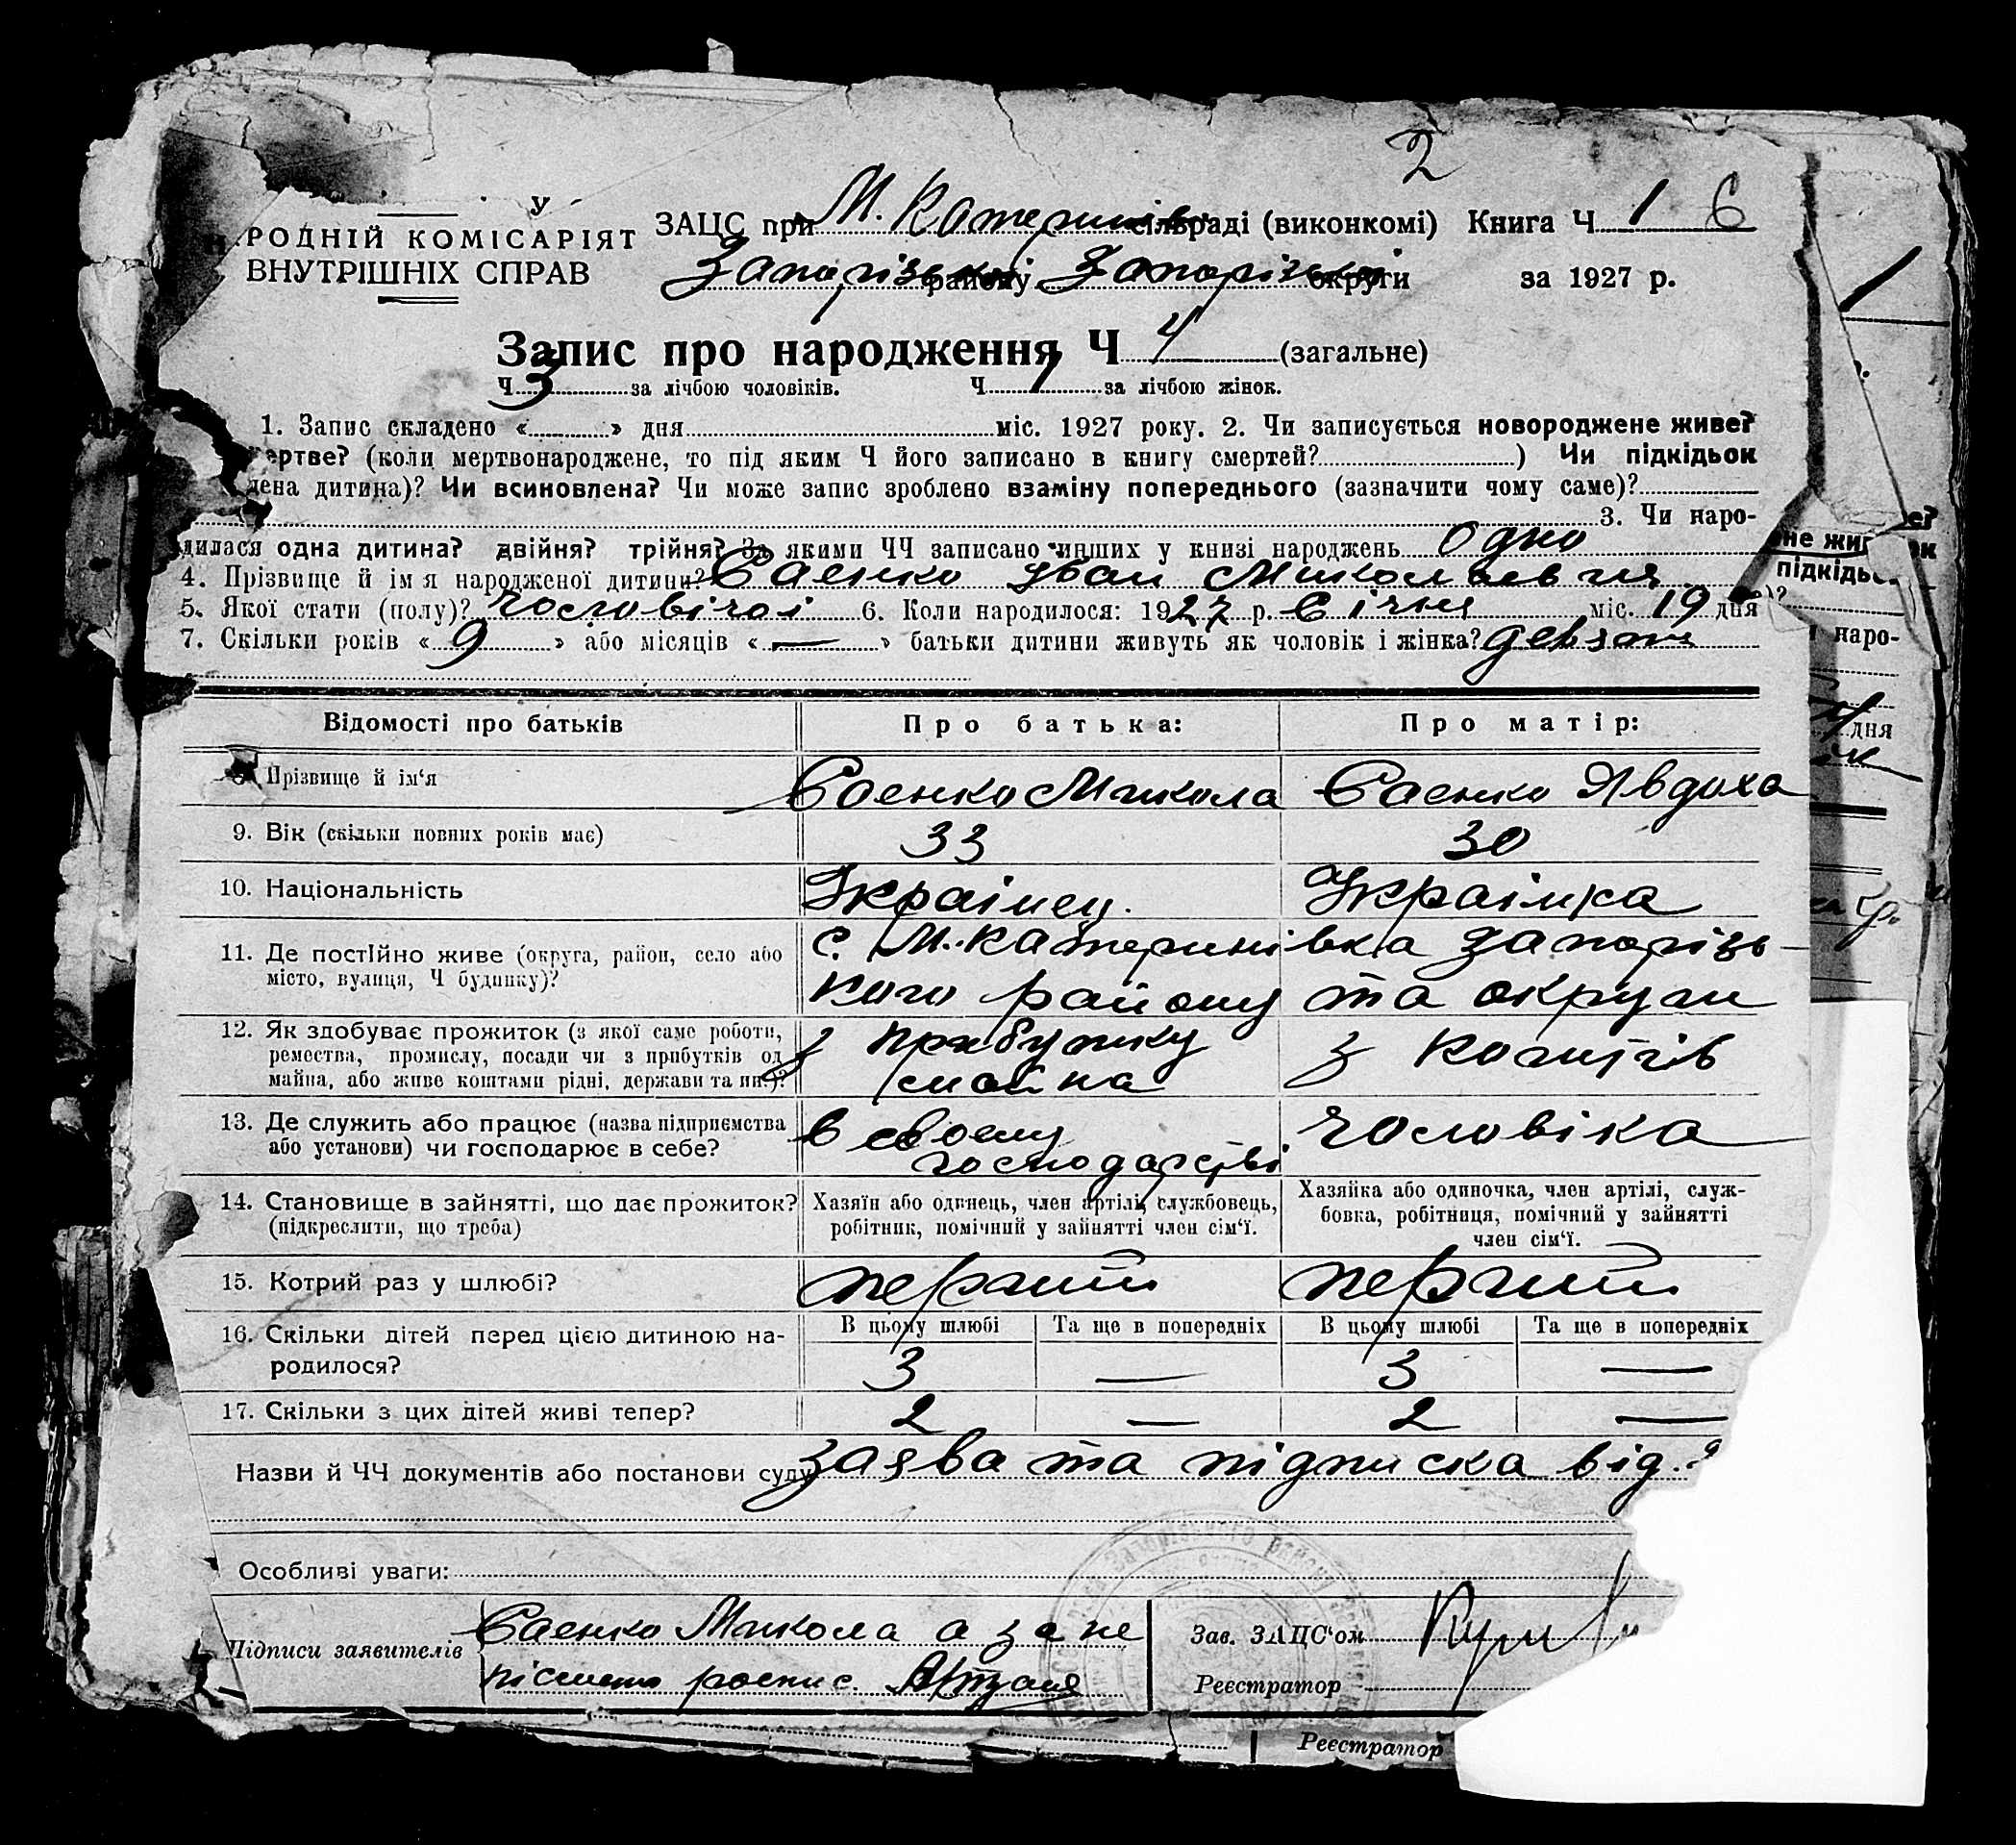 2
У
РОДНІЙ КОМІСАРІЯТ
ВНУТРІШНІХ СПРАВ
ЗАЦС при М. Катеринів сільраді (виконкомі) Книга Ч 1 6
Запорізького району Запорізької округи за 1927 р.
Запис про народження Ч 4 (загальне)
Ч 3 за лічбою чоловіків. Ч 1 за лічбою жінок.
1. Запис складено «» дня міс. 1927 року. 2. Чи записується новороджене живе?
мертве? (коли мертвонароджене, то під яким Ч його записано в книгу смертей?) Чи підкідьок
дена дитина)? Чи всиновлена? Чи може запис зроблено взаміну попереднього (зазначити чому саме)?
3. Чи наро-
дилася одна дитина? двійня? трійня? За якими ЧЧ записано инших у книзі народжень Одно
4. Прізвище й імя народженої дитини? Саєнко Іван Миколаєвич
5. Якої стати (полу)? чоловічої 6. Коли народилося: 1927 р. Січня міс. 19 дня
7. Скільки років « 9 » або місяців « — » батьки дитини живуть як чоловік і жінка? девять
Відомості про батьків Про батька: Про матір:
Прізвище й ім'я Саєнко Микола Саєнко Явдоха
9. Вік (скільки повних років має) 33 30
10. Національність Українец. Українка
11. Де постійно живе (округа, район, село або місто, вулиця, Ч будинку)? с. М.-Катеринівка Запорізь-
кого району та округи
12. Як здобуває прожиток (з якої саме роботи,
ремества, промислу, посади чи з прибутків од
майна, або живе коштами рідні, держави та ин.)? з прибутку майна з коштів
13. Де служить або працює (назва підприємства
або установи) чи господарює в себе? в своему господарстві чоловіка
14. Становище в зайнятті, що дає прожиток?
(підкреслити, що треба)
Хазяїн або одинець, член артілі, службовець,
робітник, помічний у зайнятті член сім'ї.
Хазяйка або одиночка, член артілі, служ-
бовка, робітниця, помічний у зайнятті
член сім'ї.
15. Котрий раз у шлюбі? перший перший
16. Скільки дітей перед цією дитиною на-
родилося?
В цьому шлюбі Та ще в попередніх В цьому шлюбі Та ще в попередніх
3 — 3 —
17. Скільки з цих дітей живі тепер? 2 — 2 —
Назви й ЧЧ документів або постанови суду заява та підписка від.
Особливі уваги:
Підписи заявителів Саєнко Микола а за не
Зав. ЗАЦС'ом
Реєстратор
Реєстратор